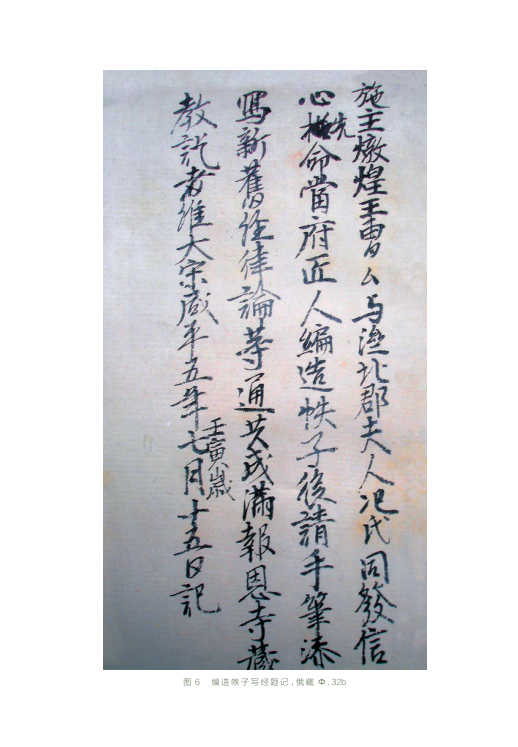 施主燉煌王曹厶与濟北郡夫人氾氏同發信
心先命當府匠人編造帙子後請手筆添
寫新舊經律論等通共成滿報恩寺藏
教訖者維大宋咸平五年壬寅歲七月十五日記
图 6 编造帙子写经题记,俄藏 Ф.32b